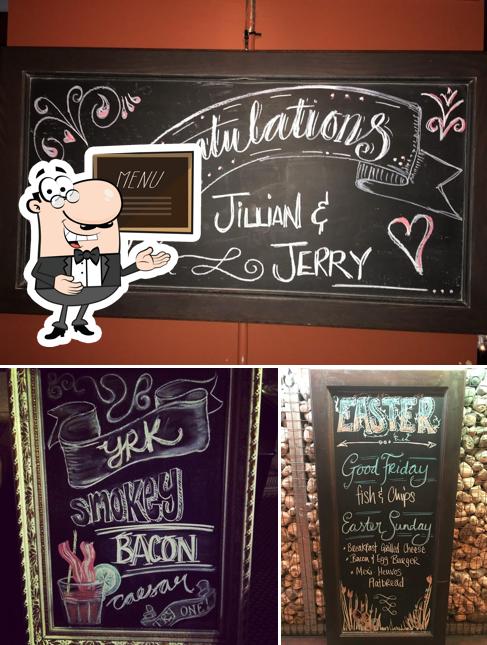 atulations
MENU
JILLIAN &
JERRY
YRK
SMOKEY
BACON
caesar
TRY ONE!
EASTER
Good Friday
fish & Chips
Easter Sunday
• Breakfast Grilled Cheese
• Bacon & Egg Burger
• Mex. Heuvos
Flatbread